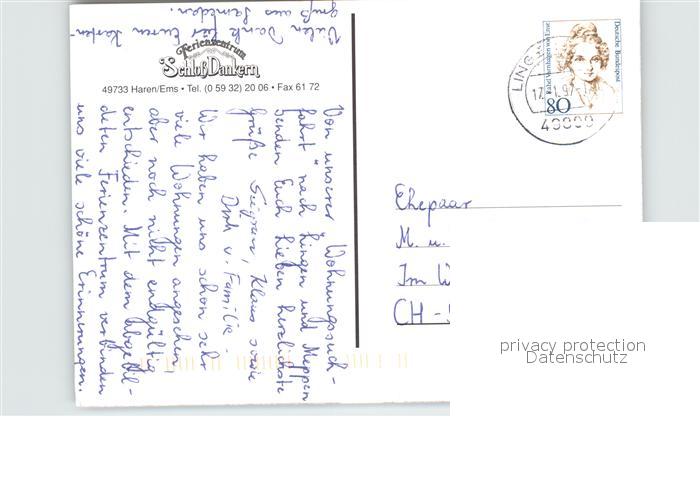 Vielen Dank für Euren Karten-
gruß aus
Ferienzentrum
Schloß Dankern
49733 Haren/Ems • Tel. (0 59 32) 20 06 • Fax 61 72
Von unserer "Wohnungssuch-
fahrt" nach Lingen und Meppen
senden Euch lieben herzlichste
Grüße Klaus sowie
Dirk v. Familie.
Wir haben uns schon sehr
viele Wohnungen angesehen,
aber noch nicht endgültig
entschieden. Mit dem abgebil-
deten Ferienzentrum verbinden
uns viele schöne Erinnerungen.
Deutsche Bundespost
Rahel Varnhagen von Ense
80
LING
17.
97-1
49809
Ehepaar
M. u.
Im W
CH-
privacy protection
Datenschutz